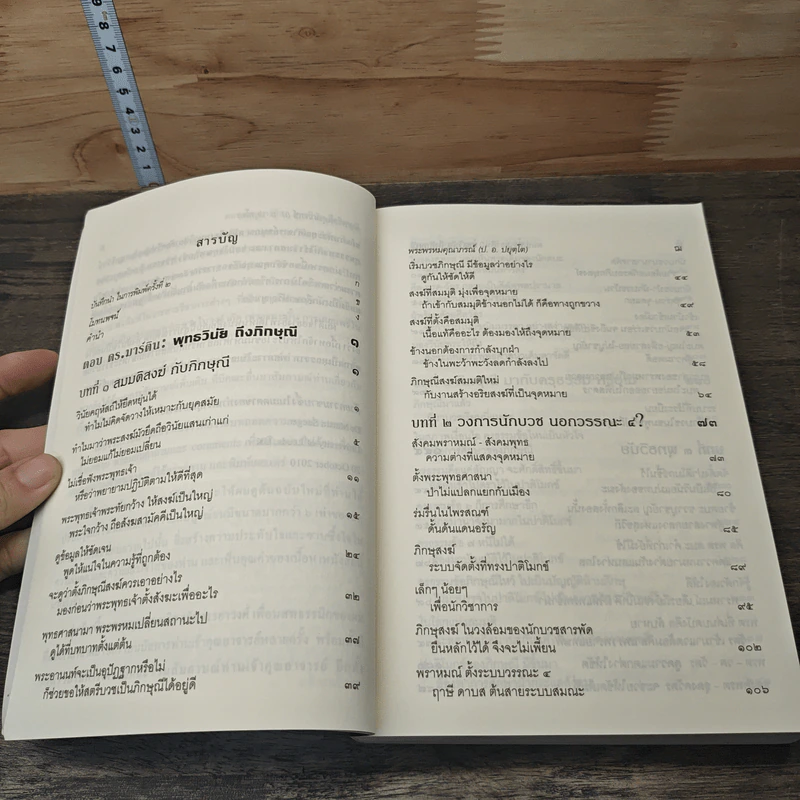 9
8
7
6
5
4
3
2
1
สารบัญ
บันทึกนำ ในการพิมพ์ครั้งที่ ๒ ก
นิเทศพจน์ ข
คำนำ ง
ตอบ ดร.มาร์ติน: พุทธวินัย ถึงภิกษุณี ๑
บทที่ ๑ สมมติสงฆ์ กับภิกษุณี ๑
วินัยคฤหัสถ์ให้ยืดหยุ่นได้
ทำไมไม่คิดจัดวางให้เหมาะกับยุคสมัย ๑
ทำไมมาว่าพระสงฆ์มัวยึดถือวินัยแสนเก่าแก่
ไม่ยอมแก้ไม่ยอมเปลี่ยน ๕
ไม่เชื่อฟังพระพุทธเจ้า
หรือว่าพยายามปฏิบัติตามให้ดีที่สุด ๑๑
พระพุทธเจ้าพระทัยกว้าง ให้สงฆ์เป็นใหญ่
พระใจกว้าง ถือสังฆสามัคคีเป็นใหญ่ ๑๕
ดูข้อมูลให้ชัดเจน
พูดให้แน่ใจในความรู้ที่ถูกต้อง ๒๔
จะดูว่าตั้งภิกษุณีสงฆ์ควรเอาอย่างไร
มองก่อนว่าพระพุทธเจ้าตั้งสังฆะเพื่ออะไร ๓๒
พุทธศาสนามา พระพรหมเปลี่ยนสถานะไป
ดูได้ที่บทบาทตั้งแต่ต้น ๓๗
พระอานนท์จะเป็นอุปัฏฐากหรือไม่
ก็ช่วยขอให้สตรีบวชเป็นภิกษุณีได้อยู่ดี ๓๙
พระพรหมคุณาภรณ์ (ป. อ. ปยุตฺโต)
เริ่มบวชภิกษุณี มีข้อมูลว่าอย่างไร
ดูกันให้ชัดให้ดี ๔๔
สงฆ์ที่สมมุติ มุ่งเพื่อจุดหมาย
ถ้าเข้ากับสมมุติข้างนอกไม่ได้ ก็คือทางถูกขวาง ๔๙
สงฆ์ที่ตั้งคือสมมุติ
เนื้อแท้คืออะไร ต้องมองให้ถึงจุดหมาย ๕๓
ข้างนอกต้องการกำลังบุกฝ่า
ข้างในพะว้าพะวังลดกำลังลงไป ๕๘
ภิกษุณีสงฆ์สมมติใหม่
กับงานสร้างอริยสงฆ์ที่เป็นจุดหมาย ๖๔
บทที่ ๒ วงการนักบวช นอกวรรณะ ๔? ๗๓
สังคมพราหมณ์ - สังคมพุทธ
ความต่างที่แสดงจุดหมาย ๗๓
ตั้งพระพุทธศาสนา
ป่าไม่แปลกแยกกับเมือง ๘๐
ร่มรื่นในไพรสณฑ์
ดั้นด้นแดนอรัญ ๘๕
ภิกษุสงฆ์
ระบบจัดตั้งที่ทรงปาติโมกข์ ๘๙
เล็กๆ น้อยๆ
เพื่อนักวิชาการ ๙๕
ภิกษุสงฆ์ ในวงล้อมของนักบวชสารพัด
ยืนหลักไว้ได้ จึงจะไม่เพี้ยน ๑๐๒
พราหมณ์ ตั้งระบบวรรณะ ๔
ฤาษี ดาบส ต้นสายระบบสมณะ ๑๐๖